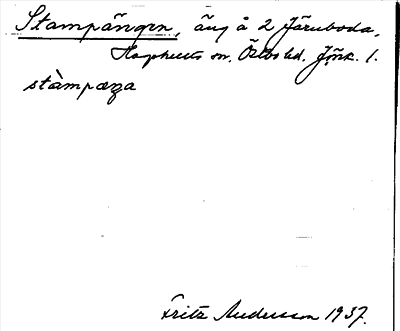 Stampängen, äng å 2 Järuboda,
Hagshults sn. Östbo hd. Jönk. l.
stàmpæŋa
Fritz Andersson 1937.